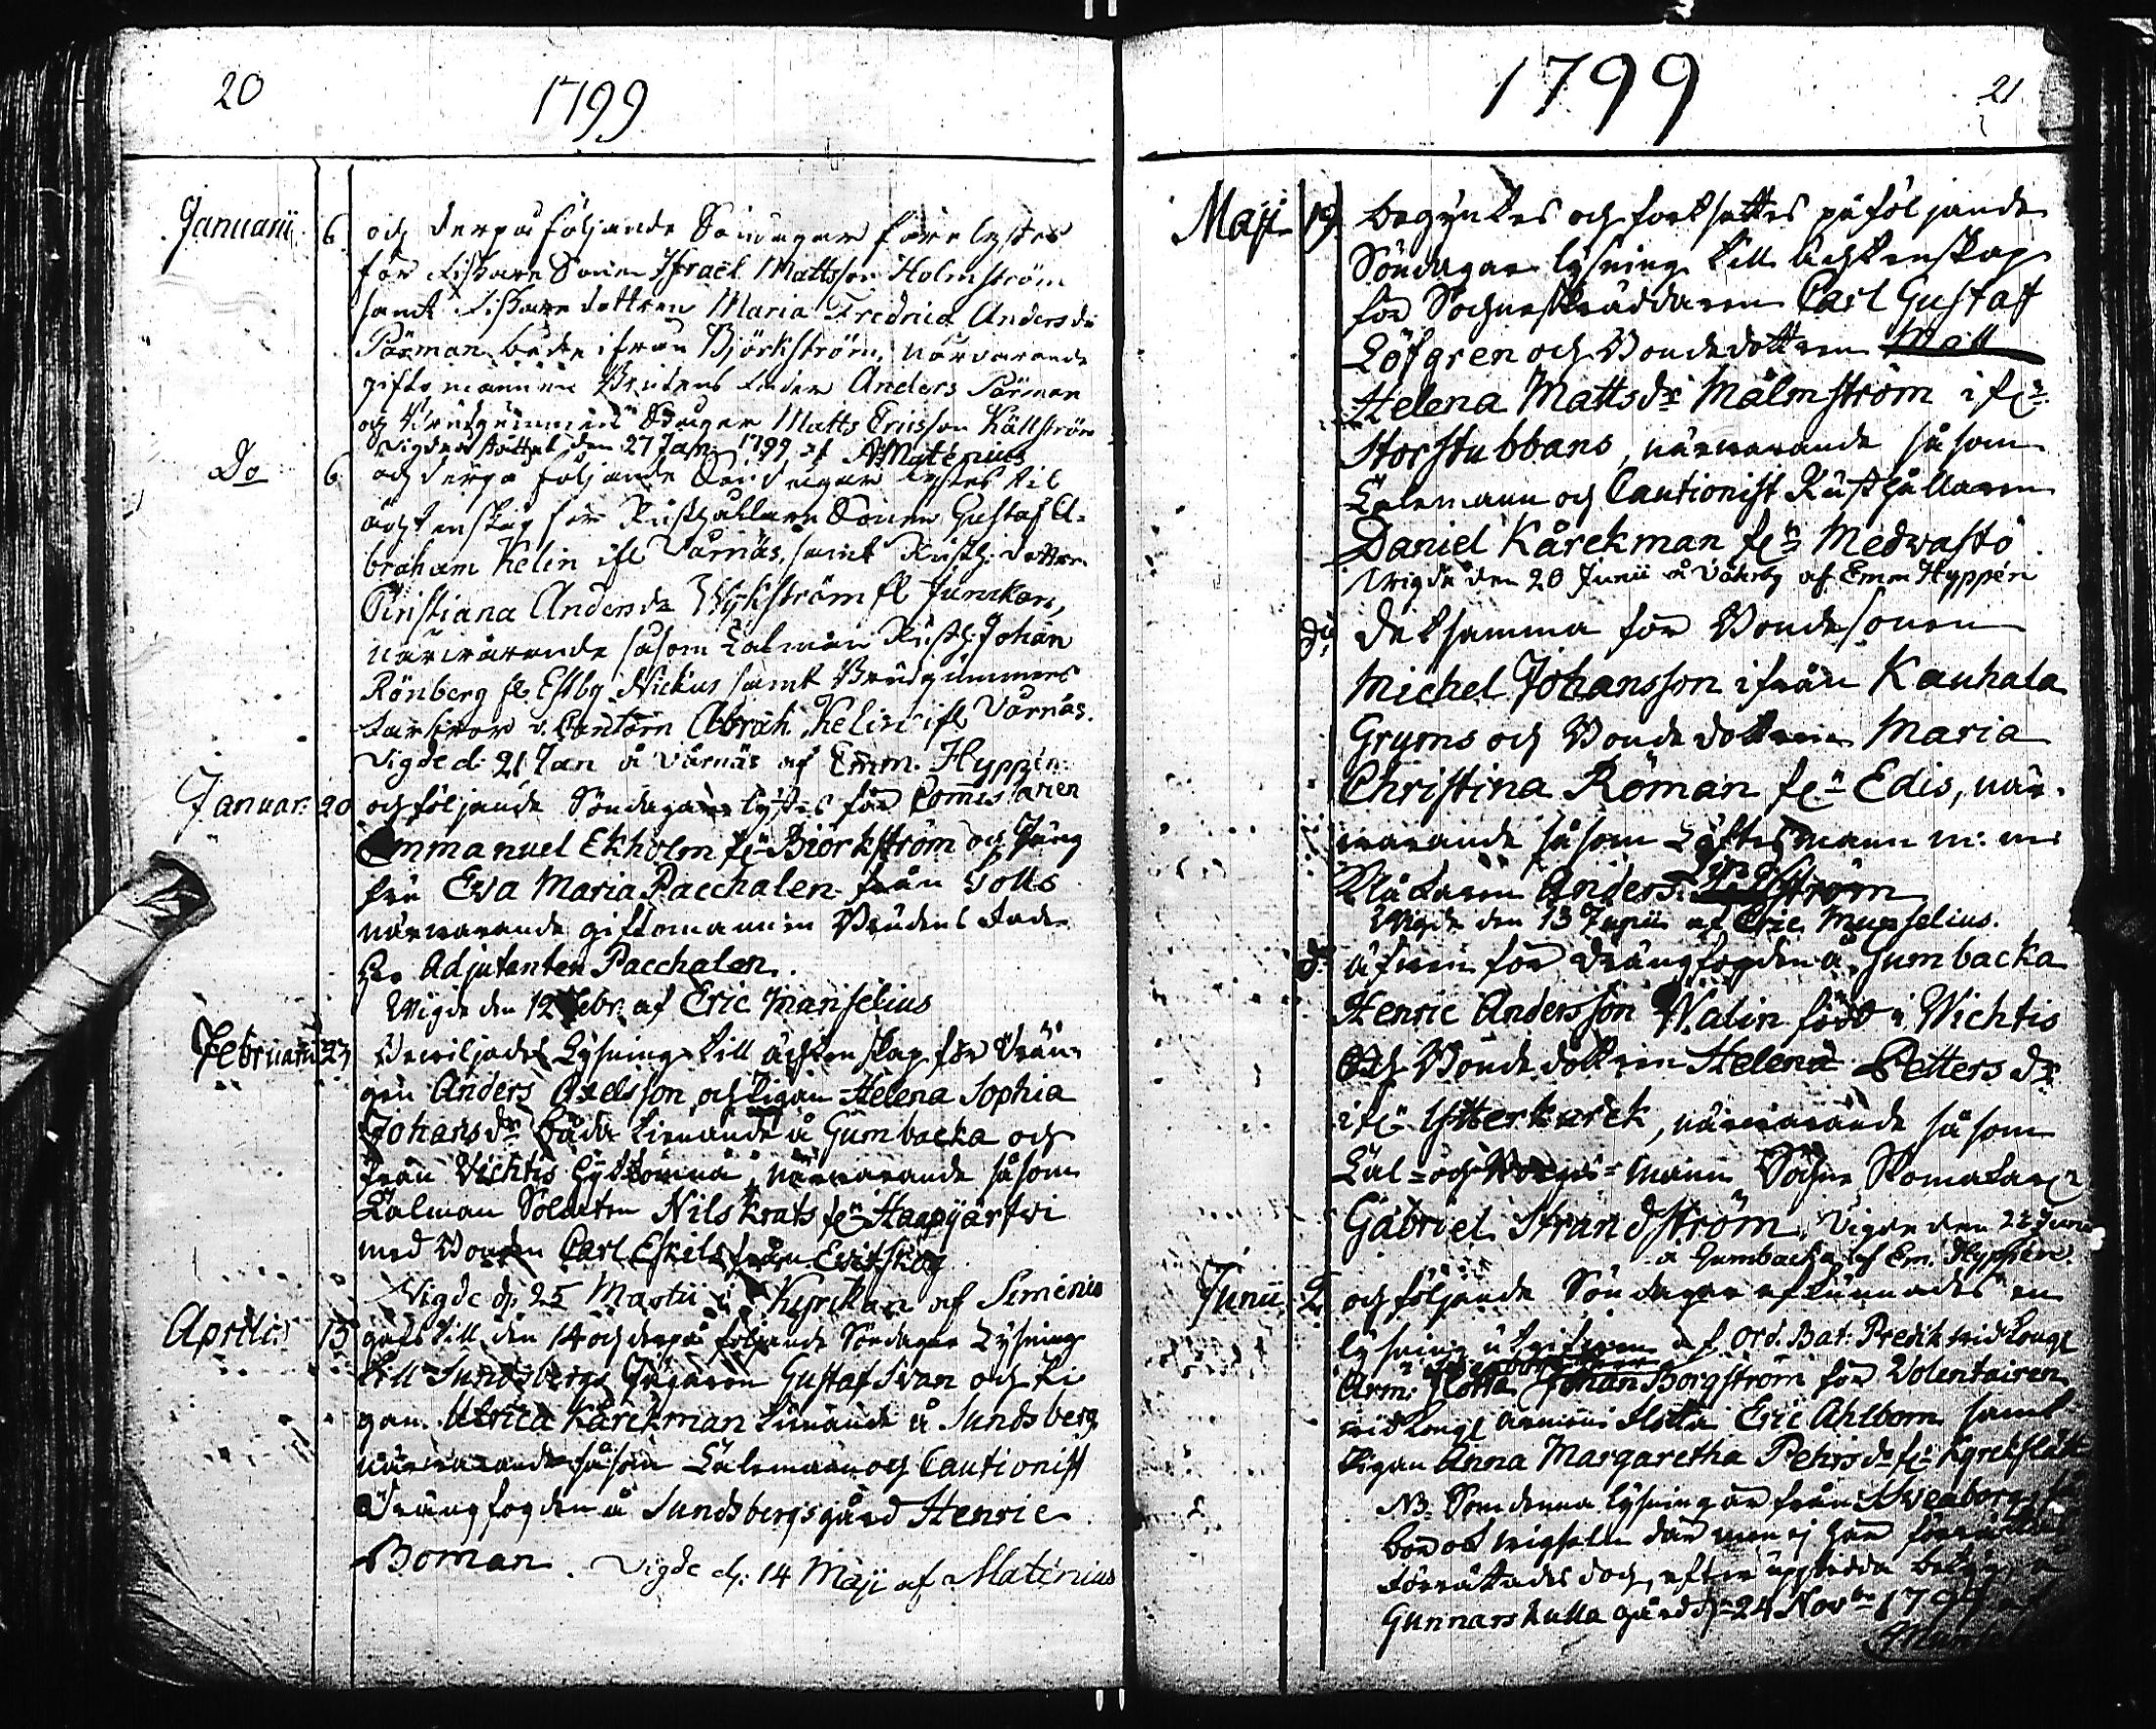 20
1799
Januarii 6 och derpå följande Söndagar före lystes
för Fiskare Sonen Israël Mattsson Holmström
samt Fiskare dottren Maria Fredrica Andersdr
Pärman både ifrån Björkström, närvarande
giftomannen Brudens fader Anders Pärman
och Brudgummens Svåger Matts Ericsson Källström
Vigde den 27 Jan: 1799 af Maténius
Do 6 och derpå följande Söndagar lystes til
ägtenskap för Rusthållare Sonen Gustaf A-
braham Kelin ifr Vårnäs, samt Rusth: dottren
Christiana Andersdr Wykström fr Junckars,
närvarande såsom Talman Rusth: Johan
Rönberg fr Estby Nickus samt Brudgummens
Farbror Cantorn Abrah. Kelin ifr Vårnäs.
Vigde d: 21 Jan å Vårnäs af Emm. Hyppén
Januar: 20 och följande Söndagar lystes för Comissarien
Emmanuel Ekholm frn Biörkström och Jung
fru Eva Maria Pacchalen från Volls
närvarande giftomannen Brudens Fader
Hr Adjutanten Pacchalen.
Wigde den 12 Febr. af Eric Manselius
Februarii 23 beviljades Lysning till ächtenskap för drän-
gen Anders Axelsson och Pigan Helena Sophia
Johansdr båda tienande å Gumbacka och
från Vichtis hytkomna, närvarande såsom
Talman Soldaten Nils Krats frn Haapjärfwi
med Bonden Carl Eskils från Evitskog
Vigde d: 25 Martii i Kyrckan af Siménius
Aprill: 13 gafs till den 14 och derpå följande Söndagar Lysning
till Sundsbergs Jägaren Gustaf Svan och Pi-
gan Ulrica Kårckman tienande å Sundsberg
närvarande såsom Talemann och Cautionist
Drängfogden å Sundsbergs gård Henric
Boman. Vigde d: 14 Maji af Maténius
1799
21
Maji 19 begyntes och fortsattes påföljande
Söndagar lysning till ächtenskap
för Sockneskräddaren Carl Gustaf
Löfgren och Bondedottren Mall
Helena Mattsdr Malmström ifrn
Storstubbans, närvarande såsom
Talemann och Cautionist Rusthållaren
Daniel Kårckman frn Medvastö.
Vigde den 20 Junii å Vohlsby af Emm Hyppén
do det samma för Bondesonen
Michel Johansson ifrån Kauhala
Gryms och Bonde dottren Maria
Christina Röman frn Edis, när-
varande såsom Löftesmann m: m:
Anders ström
Wigde den 13 Junii af Eric Manselius.
do äfven för drängfogden å Gumbacka
Henric Andersson Walin född i Wichtis
och Bonde dottren Helena Pettersdr
ifrn Ytterkurck, närvarande såsom
Tal- och Borges- mann Sockne Skomakaren
Gabriel Strandström. Vigde den 22 Junii
å Gumbacka af Em. Hyppén.
Junii 2 och följande Söndagar afkunnades en
lysning utgifven af Ord. Bat: Predik vid Kongl
Arm: Flotta Johan Borgström för Volentairen
vid Kongl Arméens Flotta Eric Ahlborn samt
Pigan Anna Margaretha Petrisdr frn Kyrckslätt
NB. Som denna lysning är från Sveaborg, så
bör ock vigseln där men ej här förrättas
Förrättades dock, efter uppteedde betyg, å
Gunnarskulla gård d: 24 Novbr 1799 af